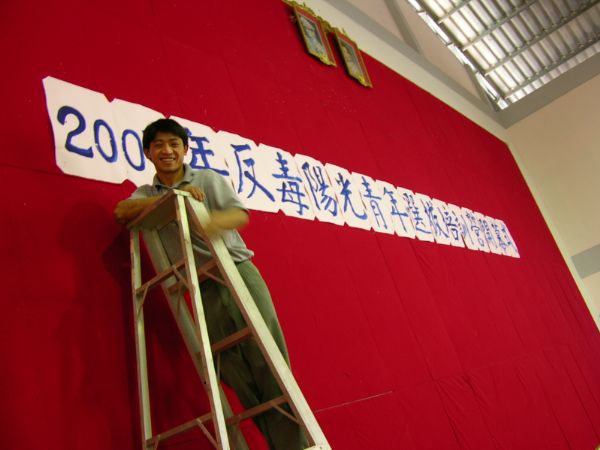 200 年反毒陽光青年選拔培訓營開幕式